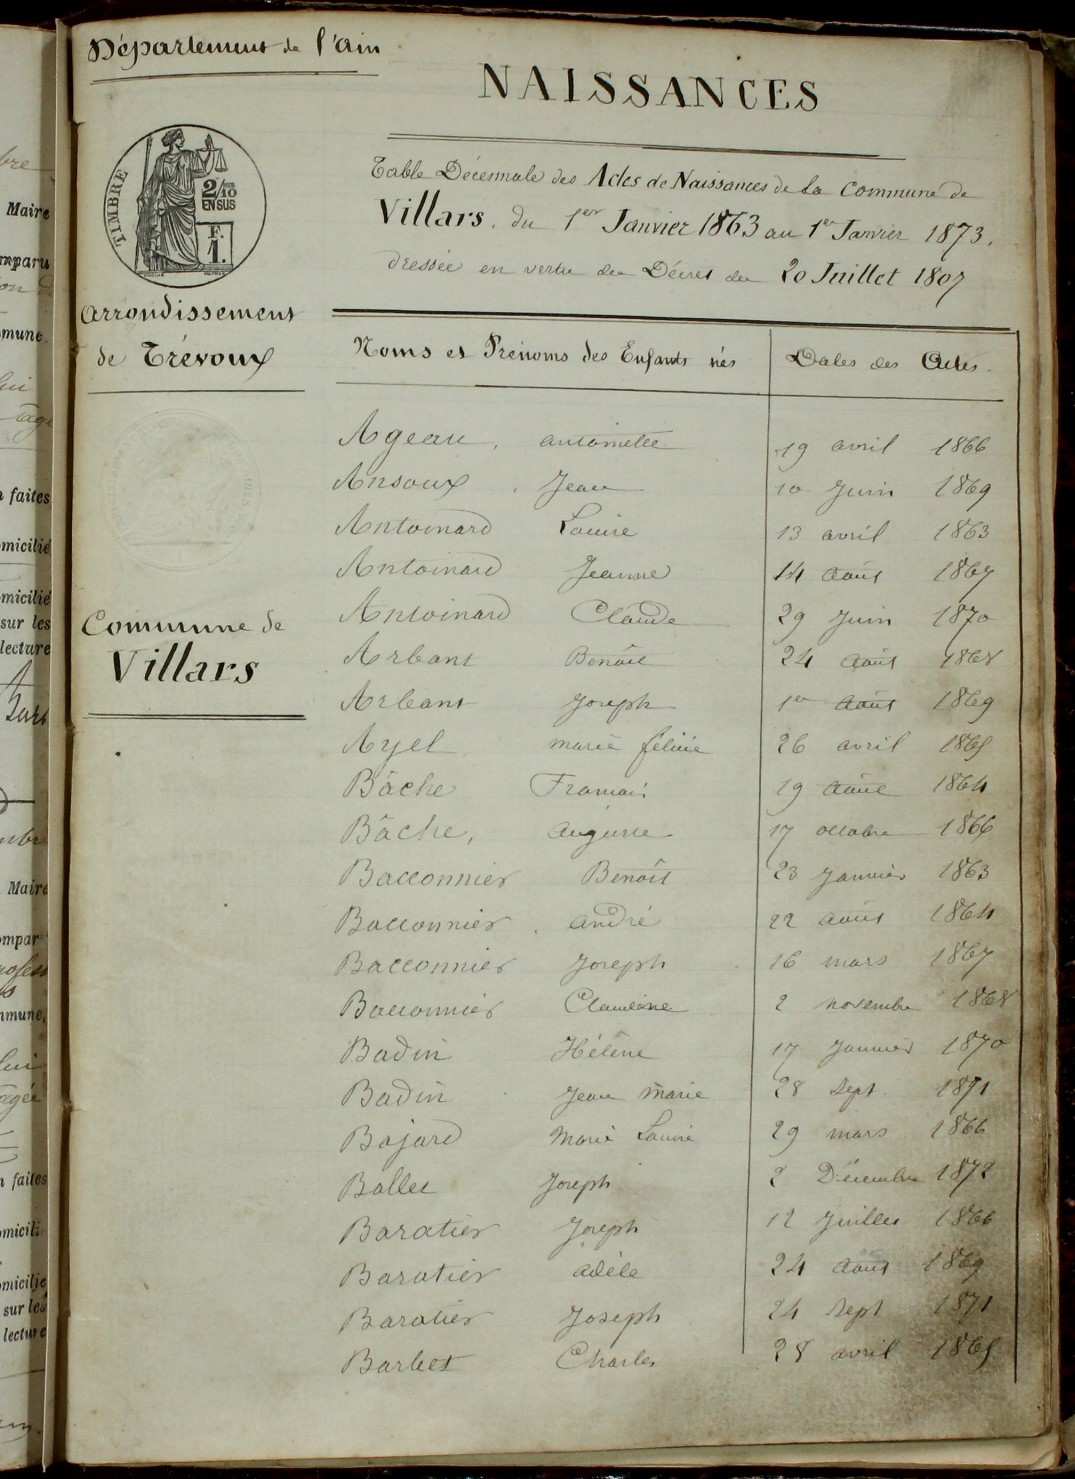 Département de l'Ain
NAISSANCES
TIMBRE
2/10
EN SUS
F.
1.
Table Décennale des Actes de Naissances de la Commune de
Villars. du 1er Janvier 1863 au 1er Janvier 1873.
dressée en vertu du Décret du 20 Juillet 1807
Arrondissement
de Trévoux
Commune de
Villars
Noms et Prénoms des Enfants nés Dates des Actes.
Ageau, antoinette 19 avril 1866
Ansoux Jean 10 Juin 1869
Antoinard Louise 13 avril 1863
Antoinard Jeanne 14 Août 1867
Antoinard Claude 29 Juin 1870
Arbant Benôit 24 Août 1868
Arbant Joseph 1er Août 1869
Ayel marie félicie 26 avril 1865
Bâche François 19 Août 1864
Bâche, auguste 17 octobre 1866
Bacconnier Benoît 23 Janvier 1863
Bacconnier André 22 août 1864
Bacconnier Joseph 16 mars 1867
Bacconnier Claudine 2 novembre 1868
Badin Hélène 17 Janvier 1870
Badin Jean marie 28 Sept. 1871
Bajard Marie Louise 29 mars 1866
Ballet Joseph 2 Décembre 1872
Baratier Joseph 12 Juillet 1866
Baratier adèle 24 Août 1869
Baratier Joseph 24 Sept 1871
Barbet Charles 28 avril 1865
Maire
mparu
mmune
faites
omicilié
omicilié
sur les
lecture
Maire
ompar
mmune,
faites
omicili
omicilie
sur les
lecture